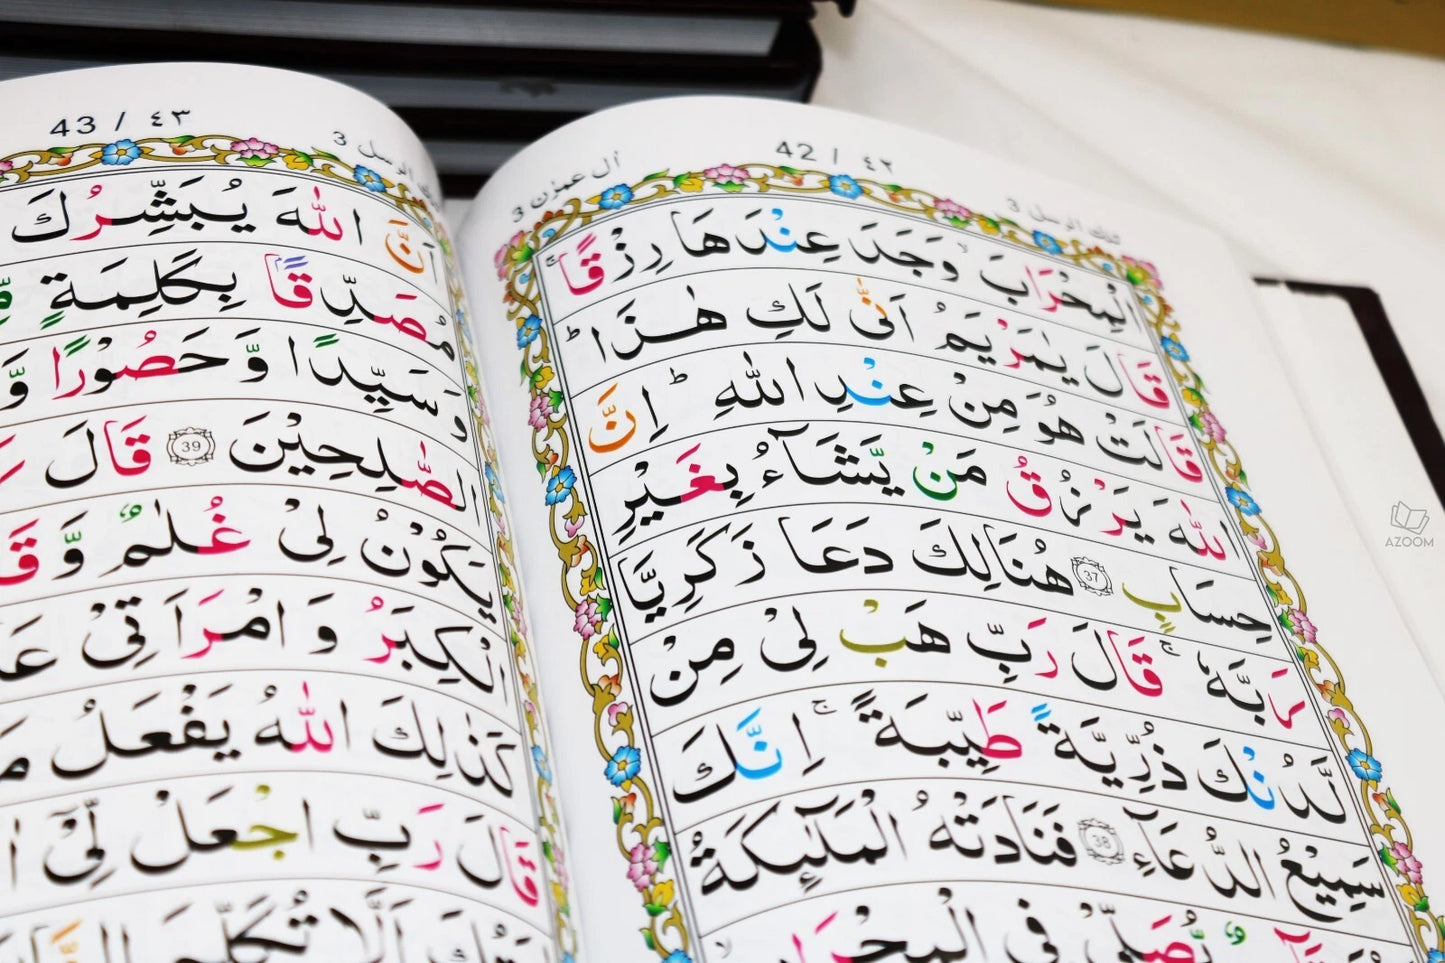 42 / ٤٢
تلك الرسل 3
اٰل عمرٰن 3
الْمِحْرَابَ ۙ وَجَدَ عِنْدَهَا رِزْقًا ۚ
قَالَ يٰمَرْيَمُ اَنّٰى لَكِ هٰذَا ؕ
قَالَتْ هُوَ مِنْ عِنْدِ اللّٰهِ ؕ اِنَّ
اللّٰهَ يَرْزُقُ مَنْ يَّشَآءُ بِغَيْرِ
حِسَابٍ 37 هُنَالِكَ دَعَا زَكَرِيَّا
رَبَّهٗ ۚ قَالَ رَبِّ هَبْ لِىْ مِنْ
لَّدُنْكَ ذُرِّيَّةً طَيِّبَةً ۚ اِنَّكَ
سَمِيْعُ الدُّعَآءِ 38 فَنَادَتْهُ الْمَلٰٓئِكَةُ
يُّصَلِّىْ فِى الْمِحْرَابِ ۙ
43 / ٤٣
الرسل 3
اَنَّ اللّٰهَ يُبَشِّرُكَ
مُصَدِّقًاۢ بِكَلِمَةٍ
وَسَيِّدًا وَّ حَصُوْرًا وَّ
الصّٰلِحِيْنَ 39 قَالَ
يَكُوْنُ لِىْ غُلٰمٌ وَّ قَ
الْكِبَرُ وَ امْرَاَتِىْ عَا
كَذٰلِكَ اللّٰهُ يَفْعَلُ مَ
قَالَ رَبِّ اجْعَلْ لِّىْ اٰ
اَلَّا تُكَلِّمَ
AZOOM